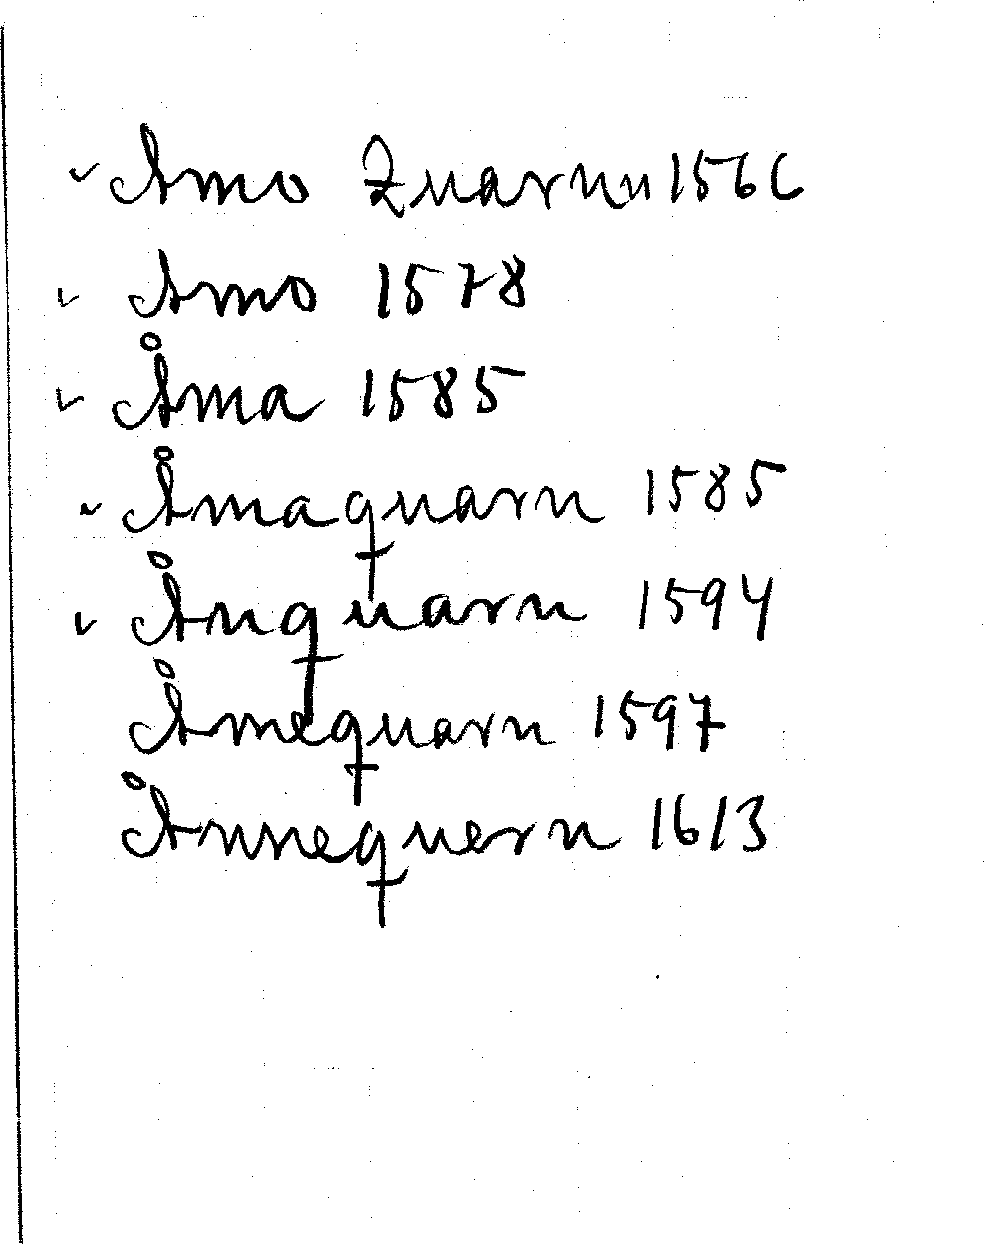 ✓ Amo Quarnn 1566
✓ Amo 1578
✓ Åma 1585
✓ Åmaquarn 1585
✓ Ånquarn 1594
Åmequarn 1597
Ånnequern 1613